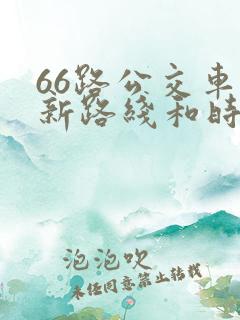 66路公交车
新路线和时
泡泡吹
未经同意禁止转载